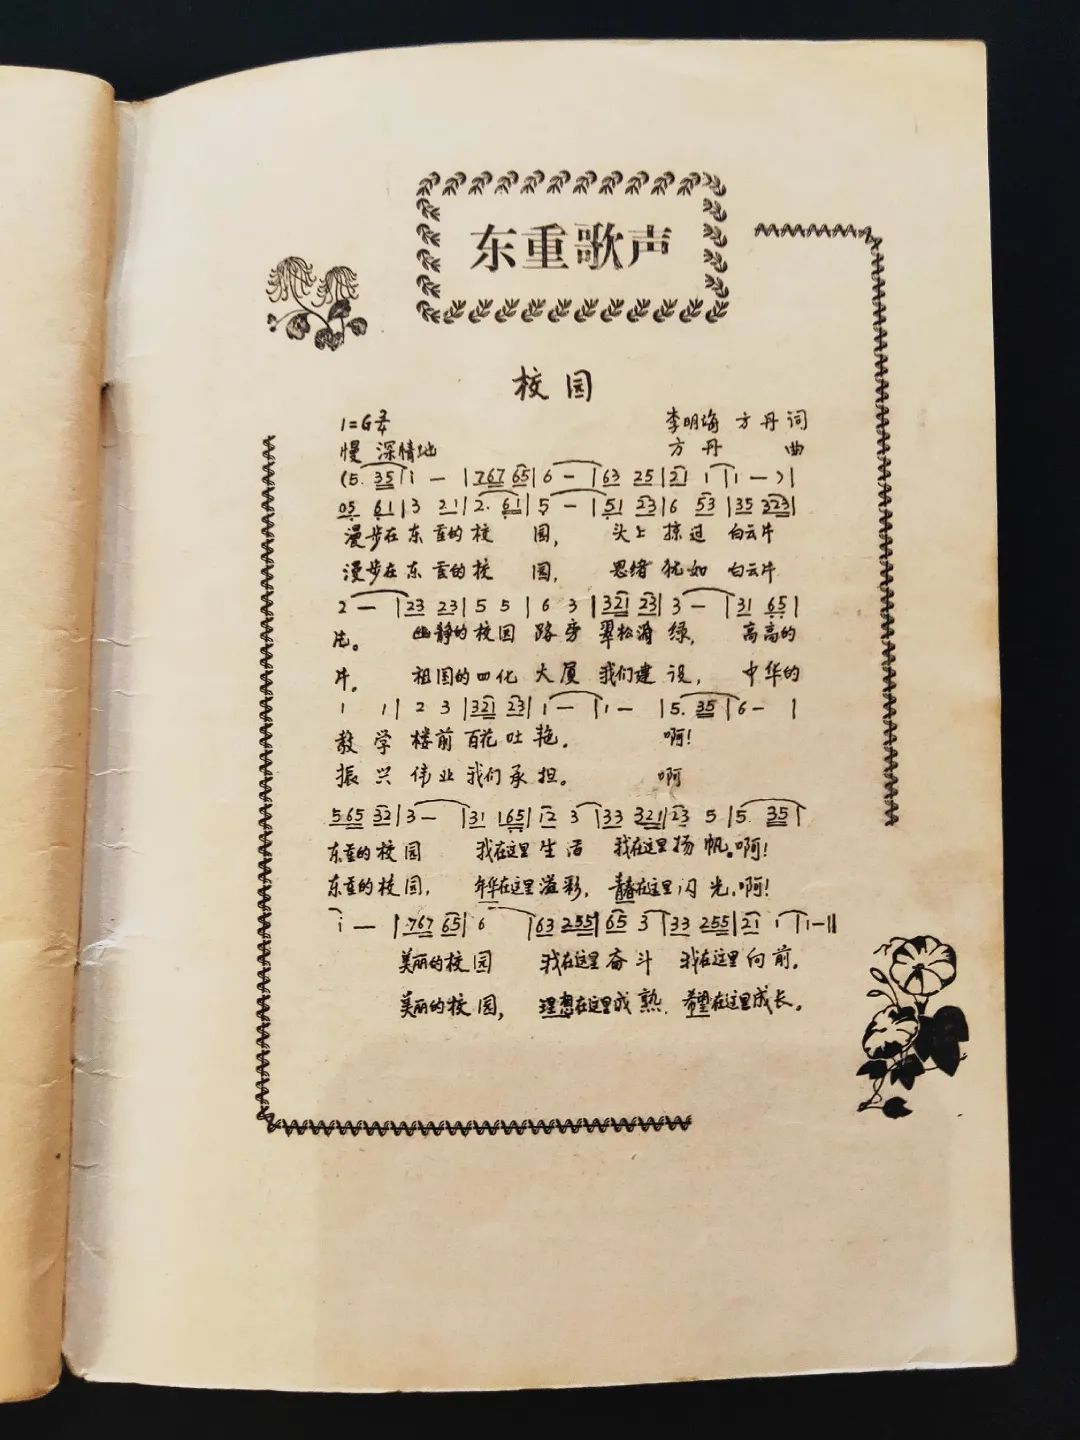 东重歌声
校园
1=G 2/4 李明海 方丹 词
慢 深情地 方丹 曲
(5. 35 | i — | 767 65 | 6 — | 63 25 | 21 1 | 1 — ) |
05 61 | 3 21 | 2. 61 | 5 — | 51 23 | 6 53 | 35 323 |
漫步在东重的校 园, 头上 掠过 白云片
漫步在东重的校 园, 思绪 犹如 白云片
2 — | 23 23 | 5 5 | 6 3 | 321 23 | 3 — | 31 65 |
片。 幽静的校园 路旁 翠松滴 绿, 高高的
片。 祖国的四化 大厦 我们建 设, 中华的
1 1 | 2 3 | 321 23 | 1 — | 1 — | 5. 35 | 6 — |
教 学 楼前 百花吐 艳。 啊!
振 兴 伟业 我们承 担。 啊
565 32 | 3 — | 31 165 | 12 3 | 33 321 | 23 5 | 5. 35 |
东重的校园 我在这里生活 我在这里扬 帆。啊!
东重的校园, 年华在这里溢彩, 青春在这里闪 光,啊!
i — | 767 65 | 6 | 63 255 | 65 3 | 33 255 | 21 1 | 1 — ‖
美丽的校园 我在这里奋斗 我在这里向前。
美丽的校园, 理想在这里成 熟, 希望在这里成长。